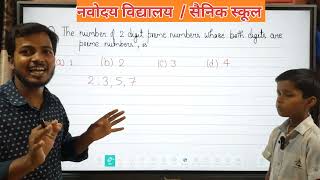 नवोदय विद्यालय / सैनिक स्कूल
The number of 2 digit prime numbers whose both digits are
prime numbers, is
(a) 1 (b) 2 (c) 3 (d) 4
2, 3, 5, 7